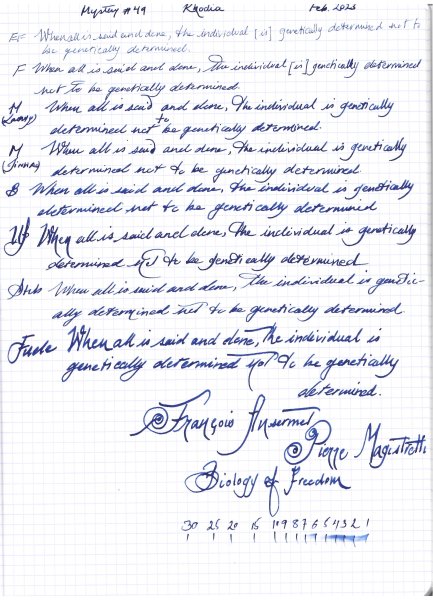 Mystery #49 Khodia Feb. 2023
EF When all is said and done, the individual [is] genetically determined not to
be genetically determined.
F When all is said and done, the individual [is] genetically determined
not to be genetically determined.
M When all is said and done, the individual is genetically
determined not to be genetically determined.
M When all is said and done, the individual is genetically
determined not to be genetically determined
B When all is said and done, the individual is genetically
determined not to be genetically determined
When all is said and done, the individual is genetically
determined not to be genetically determined
Stub When all is said and done, the individual is genetic-
ally determined not to be genetically determined.
Fude When all is said and done, the individual is
genetically determined not to be genetically
determined.
François Ansermet
Pierre Magistretti
Biology of Freedom
30 25 20 15 10 9 8 7 6 5 4 3 2 1